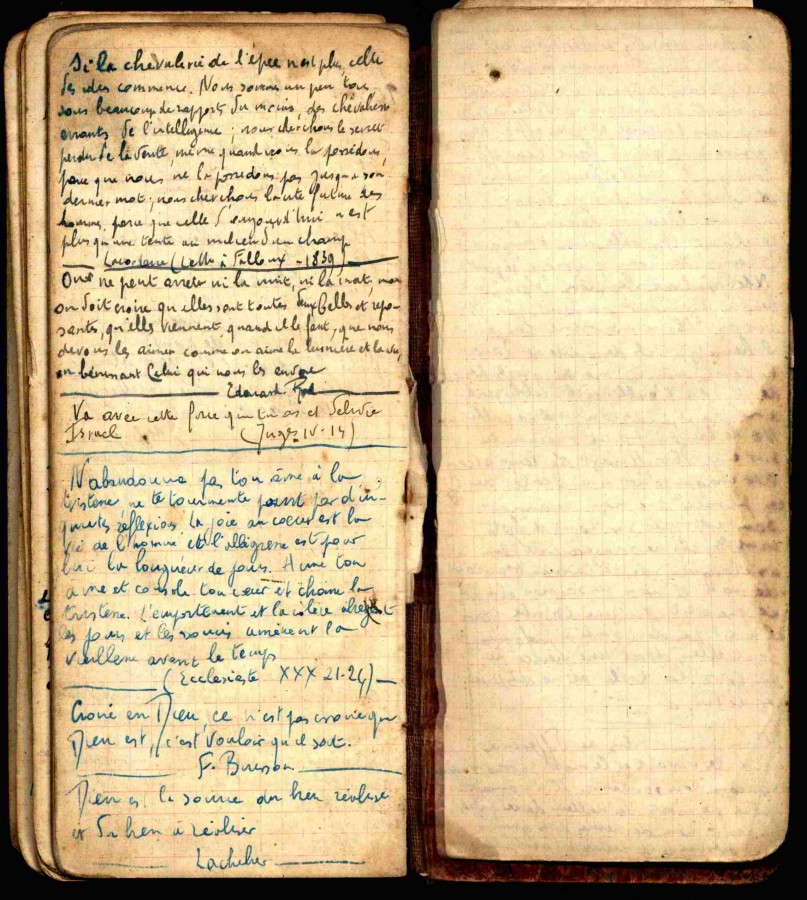 Si la chevalerie de l'épée n'est plus, celle
des idées commence. Nous sommes un peu tous,
sous beaucoup de rapports du moins, des chevaliers
errants de l'intelligence ; nous cherchons le secret
perdu de la vérité, même quand nous la possédons,
parce que nous ne la possédons pas jusqu'à son
dernier mot ; nous cherchons la cité future des
hommes, parce que celle d'aujourd'hui n'est
plus qu'une tente au milieu d'un champ
Lacordaire (Lettre à Falloux - 1839)
On ne peut arrêter ni la nuit, ni la mort, mais
on doit croire qu'elles sont toutes deux belles et repo-
santes, qu'elles viennent quand il le faut, que nous
devons les aimer comme on aime la lumière et la vie,
en bénissant Celui qui nous les envoie
Edouard Rod
Va avec cette force que tu as et délivre
Israël (Juges IV-14)
N'abandonne pas ton âme à la
tristesse ne te tourmente point par d'in-
quiètes réflexions la joie au coeur est la
vie de l'homme et l'allégresse est pour
lui la longueur de jours. Aime ton
âme et console ton coeur et chasse la
tristesse. L'emportement et la colère abrègent
les jours et les soucis amènent la
vieillesse avant le temps
(Ecclesiaste XXX 21-24)
Croire en Dieu, ce n'est pas croire que
Dieu est, c'est vouloir qu'il soit.
F. Buisson
Dieu est la source du bien réalisé
et du bien à réaliser
Lachelier